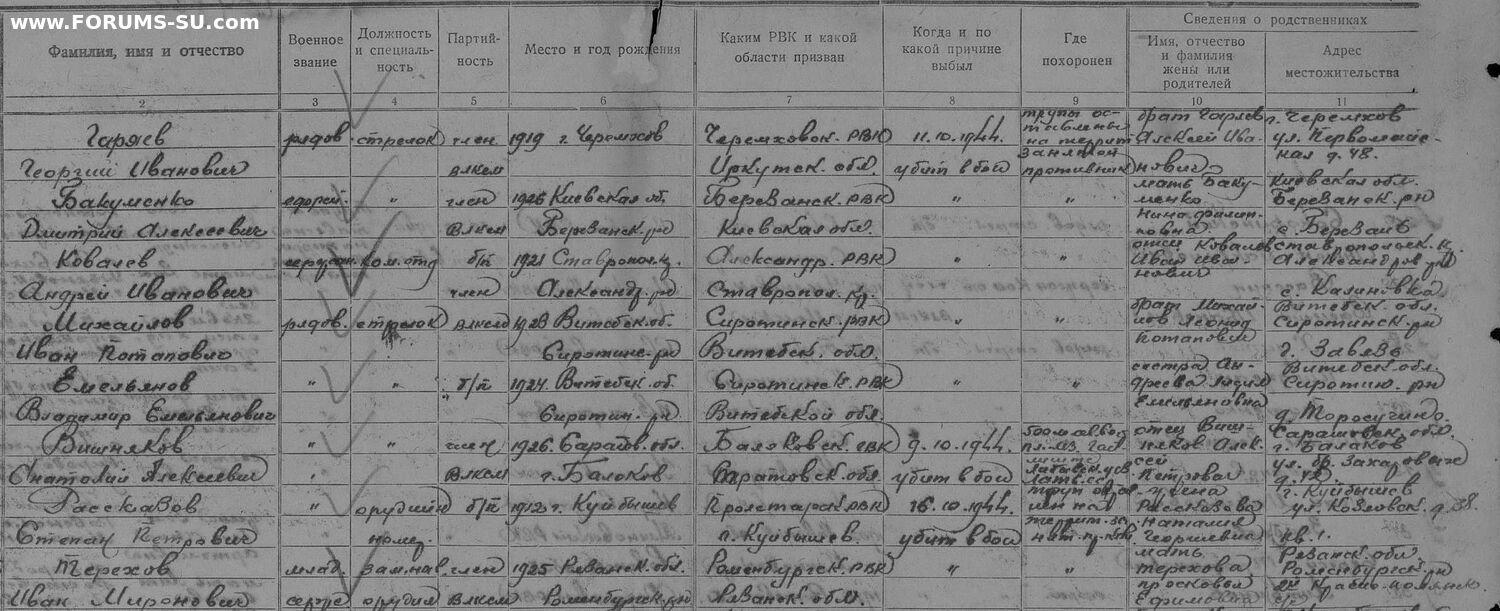 www.FORUMS-SU.com
Фамилия, имя и отчество
Военное звание
Должность и специаль-ность
Партий-ность
Место и год рождения
Каким РВК и какой области призван
Когда и по какой причине выбыл
Где похоронен
Сведения о родственниках
Имя, отчество и фамилия жены или родителей
Адрес местожительства
2 3 4 5 6 7 8 9 10 11
Гаряев рядов. стрелок член 1919 г. Черемхов Черемховск. РВК 11.10.1944 трупы ос-тавлены на террит брат Гаряев Алексей Ива- г. Черемхов ул. Первомайс-ная д. 48.
Георгий Иванович влксм Иркутск. обл. убит в бою занятой противник нович
Бакуменко ефрей. " член 1926 Киевская об. Березанск. РВК " " мать Баку-менко Киевская обл. Березанск. рн
Дмитрий Алексеевич влксм Березанск. рн Киевская обл. Нина Филип-повна с. Березань
Ковалев ком. отд б/п 1921 Ставропол. к. Александр. РВК " " отец Ковалев Иван Ива- Ставропольск. к. Александров. рн
Андрей Иванович член Александ. рн Ставропол. кр. нович с. Калиновка
Михайлов рядов. стрелок влксм Витебск. об. Сиротинск. РВК " " брат Михай-лов Леонид Витебск. обл. Сиротинск. рн
Иван Потапович Сиротинс. рн Витебск. обл. Потапович д. Завязь
Емельянов " " б/п 1924. Витебск. об. Сиротинск. РВК " " сестра Ан-дреева Лидия Витебск. обл. Сиротин. рн
Владимир Емельянович Сиротин. рн Витебской обл. Емельяновна
Вишняков " " член 1926. Саратов. обл. Балаковск. РВК 9.10.1944. отец Виш-няков Алек-сей Саратовск. обл. г. Балаков
Анатолий Алексеевич влксм г. Балаков Саратовск. обл. убит в бою Петрович д. 12.
Рассказов " орудийн б/п 1912 г. Куйбышев Пролетарск. РВК 16.10.1944. жена Рассказова г. Куйбышев ул. Козловск. д. 38.
Степан Петрович номер. г. Куйбышев. убит в бою Наталия Георгиевна кв. 1.
Терехов млад. зам. нав. член 1925 Рязанск. обл. РВК " " мать Терехова Рязанск. обл.
Иван Миронович серж орудия влксм Рязанск. обл. Просковья Ефимовна